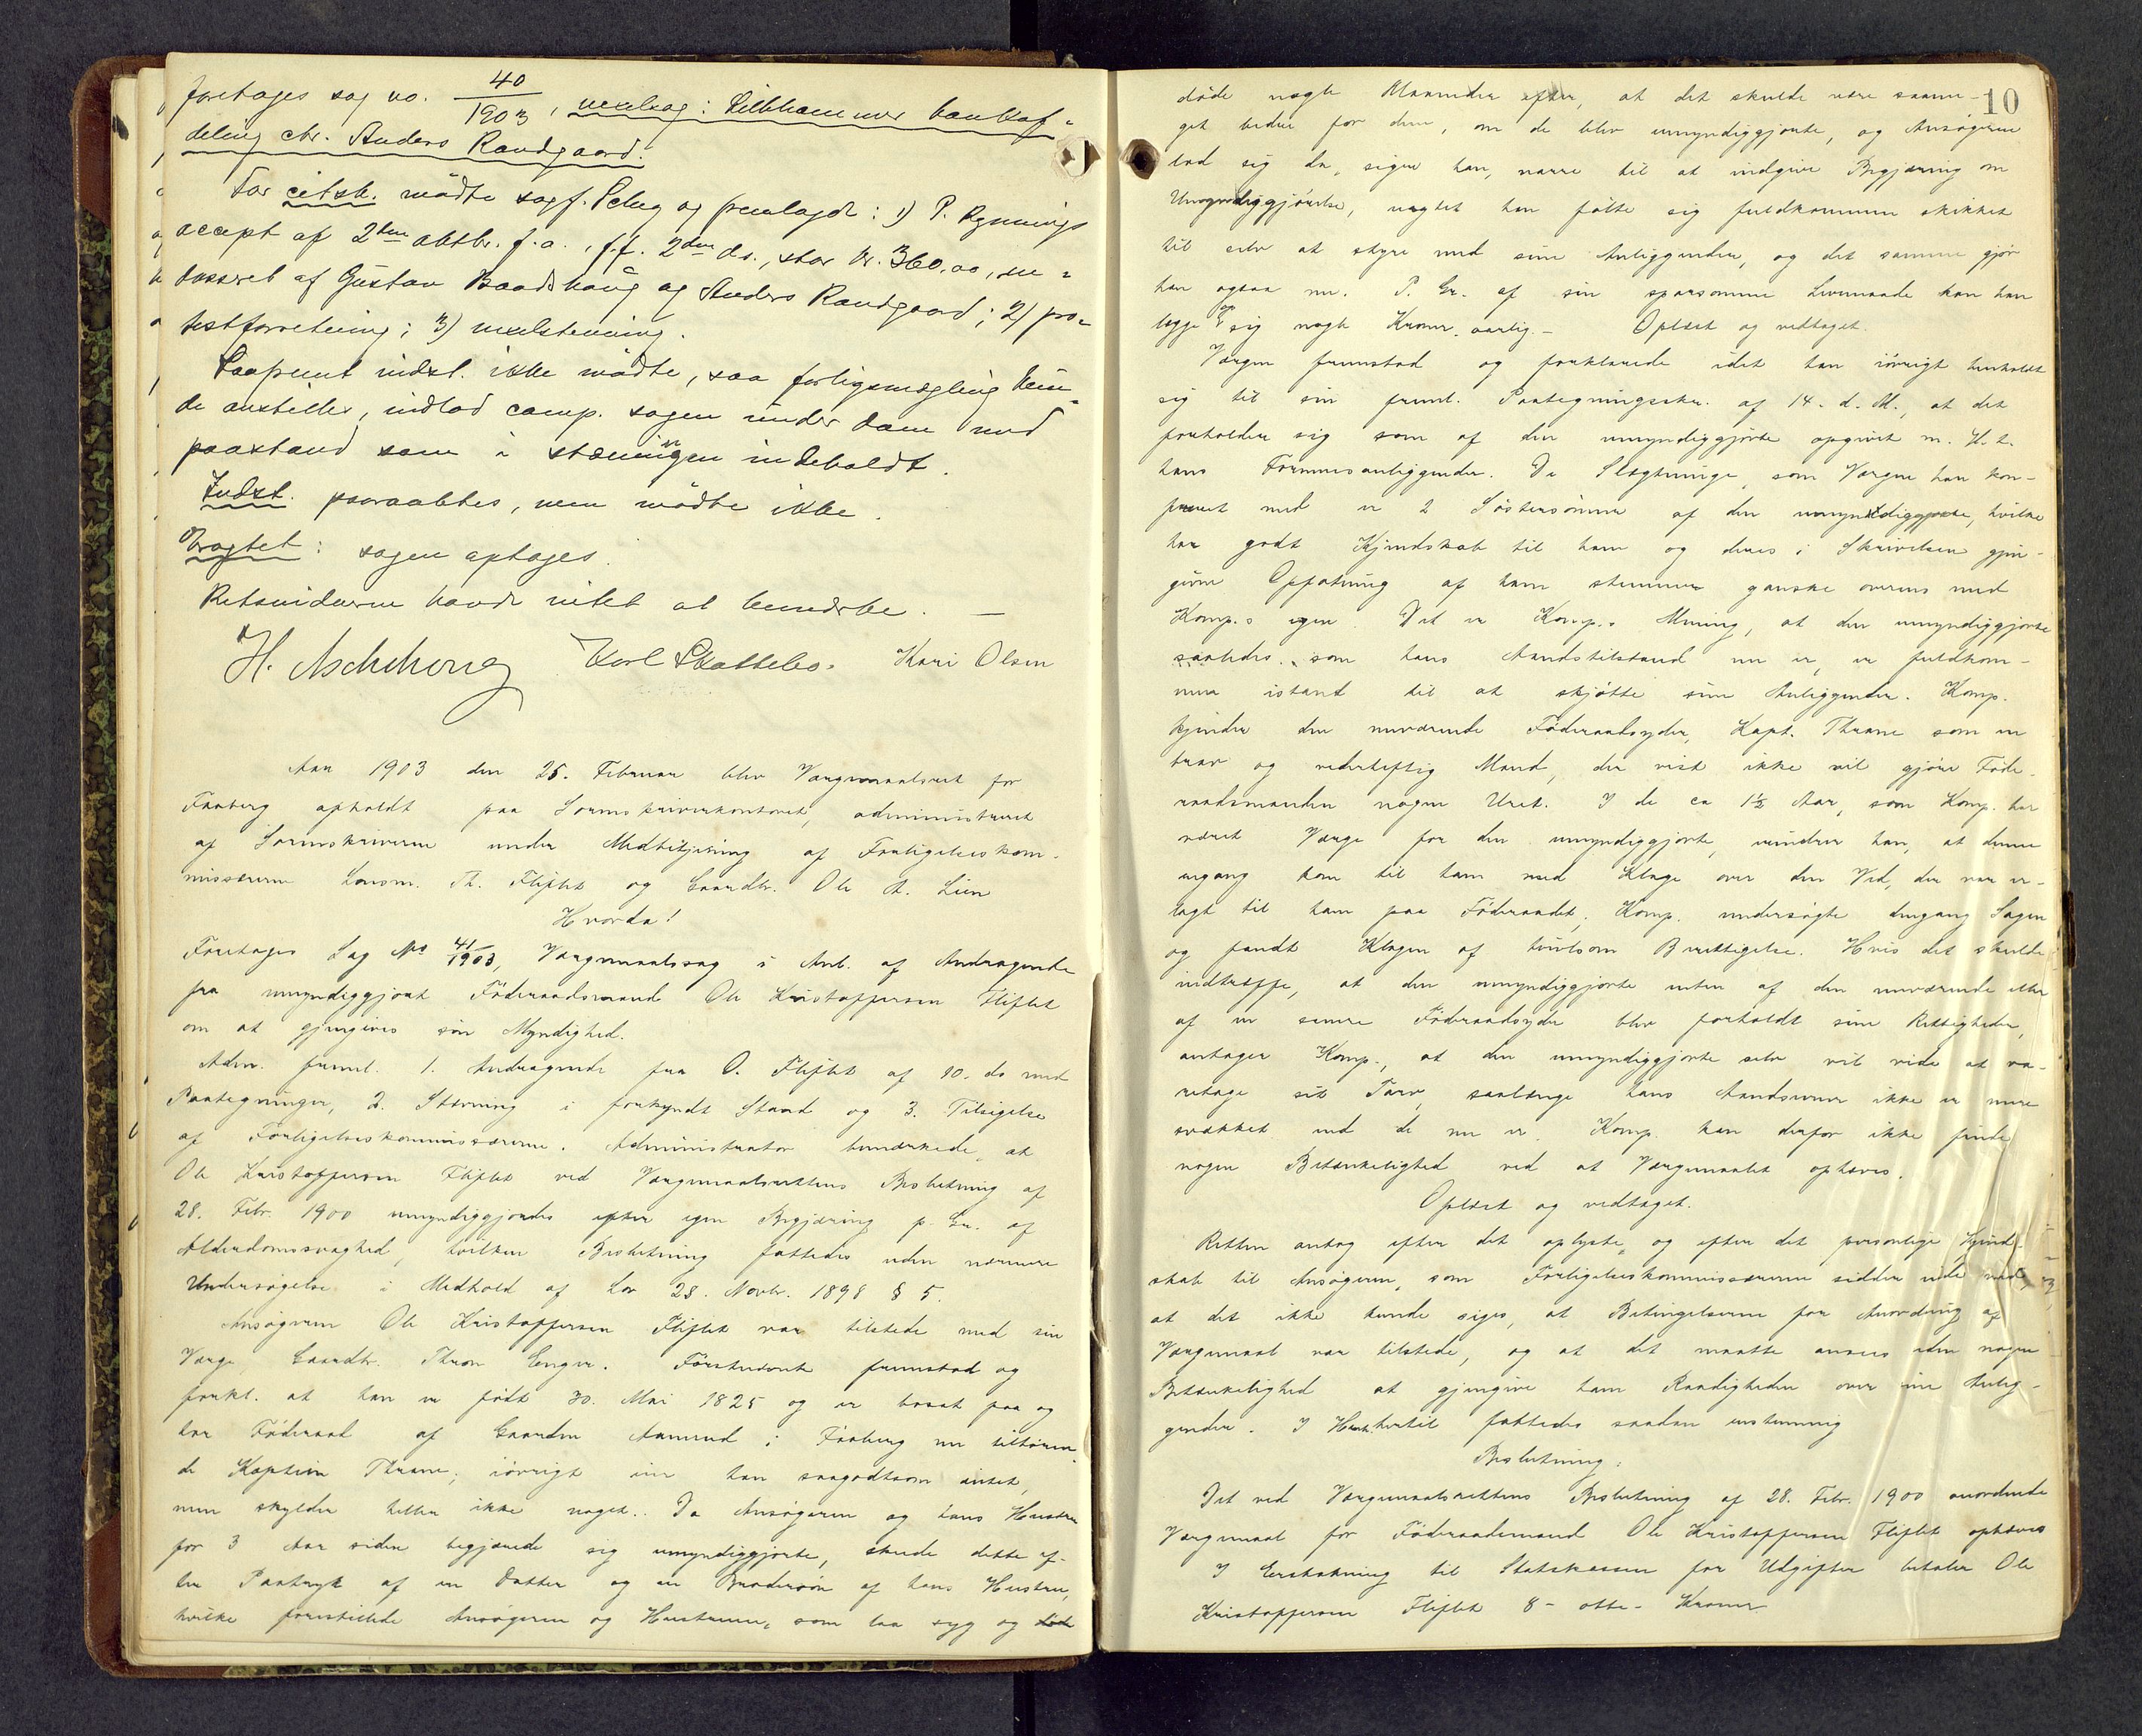 foretages sag no. 40/1903, vexelsag: Lillehammer bankaf-
deling ctr. Anders Randgaard.
For citst. mödte sagf. Selvig og fremlagde: 1) P. Rynnings
accept af 2den oktbr. f.a., f.f. 2den ds., stor kr. 360,00, en-
dosseret af Gustav Baadshaug og Anders Randgaard; 2) pro-
testforretning; 3) vexelstevning.
Saasnart indst. ikke mödte, saa forligsmægling kun-
de anstilles, indlod comp. sagen under dom med
paastand som i stævningen indeholdt.
Indst. paaraabtes, men mödte ikke.
Eragtet: sagen optages.
Retsvidnerne havde intet at bemærke. —
H. Aschehoug Karl Skattebo. Kari Olsen
Aar 1903 den 25. Februar blev Værgemaalsret for
Faaberg afholdt paa Sorenskriverkontoret, administreret
af Sorenskriveren under Medbetjening af Forligelseskom-
missærerne Lensm. Th. Fliflet og Gaardbr. Ole A. Lien
Hvorda!
Foretoges Sag No 41/1903, Værgemaalssag i Anl. af Andragende
fra umyndiggjort Föderaadsmand Ole Kristoffersen Fliflet
om at gjengives sin Myndighed.
Adm. freml. 1. Andragende fra O. Fliflet af 10. ds med
Paategninger, 2. Stævning i forkyndt Stand og 3. Tilsigelse
af Forligelseskommissærerne. Administrator bemærkede, at
Ole Kristoffersen Fliflet ved Værgemaalsrettens Beslutning af
28. Febr. 1900 umyndiggjordes efter egen Begjæring p. Gr. af
Alderdomssvaghed, hvilken Beslutning fattedes uden nærmere
Undersøgelse i Medhold af Lov 28. Novbr. 1898 § 5.
Ansögeren Ole Kristoffersen Fliflet var tilstede med sin
Værge, Gaardbr. Thron Enger. Förstnævnte fremstod og
forkl. at han er födt 30. Mai 1825 og er bosat paa og
har Föderaad af Gaarden Aamrud i Faaberg nu tilhören-
de Kaptein Thrane; iövrigt eier han saagodtsom intet,
men skylder heller ikke noget. Da Ansögeren og hans Hustru
for 3 Aar siden begjærede sig umyndiggjorte, skede dette ef-
ter Paatryk af en Datter og en Brodersön af hans Hustru,
hvilke forestillede Ansögeren og Hustruen, som laa syg og
10
döde nogle Maaneder efter, at det skulde være saame-
get bedre for dem, om de blev umyndiggjorte, og Ansögeren
lod sig da, siger han, narre til at indgive Begjæring om
Umyndiggjörelse, uagtet han fölte sig fuldkommen skikket
til selv at styre med sine Anliggender, og det samme gjör
han ogsaa nu. P. Gr. af sin sparsomme Levemaade kan han
lægge op sig nogle Kroner aarlig. — Oplæst og vedtaget.
Værgen fremstod og forklarede idet han iövrigt henholdt
sig til sin freml. Paategningsskr. af 14. d. M., at det
forholder sig som af den umyndiggjorte opgivet m. H. t.
hans Formuesanliggender. De Slægtninge, som Værgen har kon-
fereret med er 2 Söstersönner af den umyndiggjorte, hvilke
har godt Kjendskab til ham og deres i Skrivelsen gjen-
givne Opfatning af ham stemmer ganske overens med
Komp.s egen. Det er Komp.s Mening, at den umyndiggjorte
saaledes som hans Aandstilstand nu er, er fuldkom-
men istand til at skjötte sine Anliggender. Komp.
kjender den nuværende Föderaadsyder, Kapt. Thrane som en
brav og vederheftig Mand, der vist ikke vil gjöre Föde-
raadsmanden nogen Uret. I de ca 1½ Aar, som Komp. har
været Værge for den umyndiggjorte, mindes han, at denne
engang kom til ham med Klage over den Ved, der var er-
lagt til ham paa Föderaadet. Komp. undersögte dengang Sagen
og fandt Klagen af tvivlsom Berettigelse. Hvis det skulde
indtræffe, at den umyndiggjorte enten af den nuværende eller
af en senere Föderaadsyder blev forholdt sine Rettigheder,
antager Komp., at den umyndiggjorte selv vil vide at va-
retage sit Tarv, saalænge hans Aandsevner ikke er mere
svækket end de nu er. Komp. kan derfor ikke finde
nogen Betænkelighed ved at Værgemaalet ophæves.
Oplæst og vedtaget.
Retten antog efter det oplyste, og efter det personlige Kjend-
skab til Ansögeren, som Forligelseskommissærerne sidder inde med,
at det ikke kunde siges, at Betingelserne for Anordning af
Værgemaal var tilstede, og at det maatte ansees uden nogen
Betænkelighed at gjengive ham Raadigheden over sine Anlig-
gender. I Henh. hertil fattedes saadan enstemmig
Beslutning:
Det ved Værgemaalsrettens Beslutning af 28. Febr. 1900 anordnede
Værgemaal for Föderaadsmand Ole Kristoffersen Fliflet ophæves
I Erstatning til Statskassen for Udgifter betaler Ole
Kristoffersen Fliflet 8 - otte - Kroner